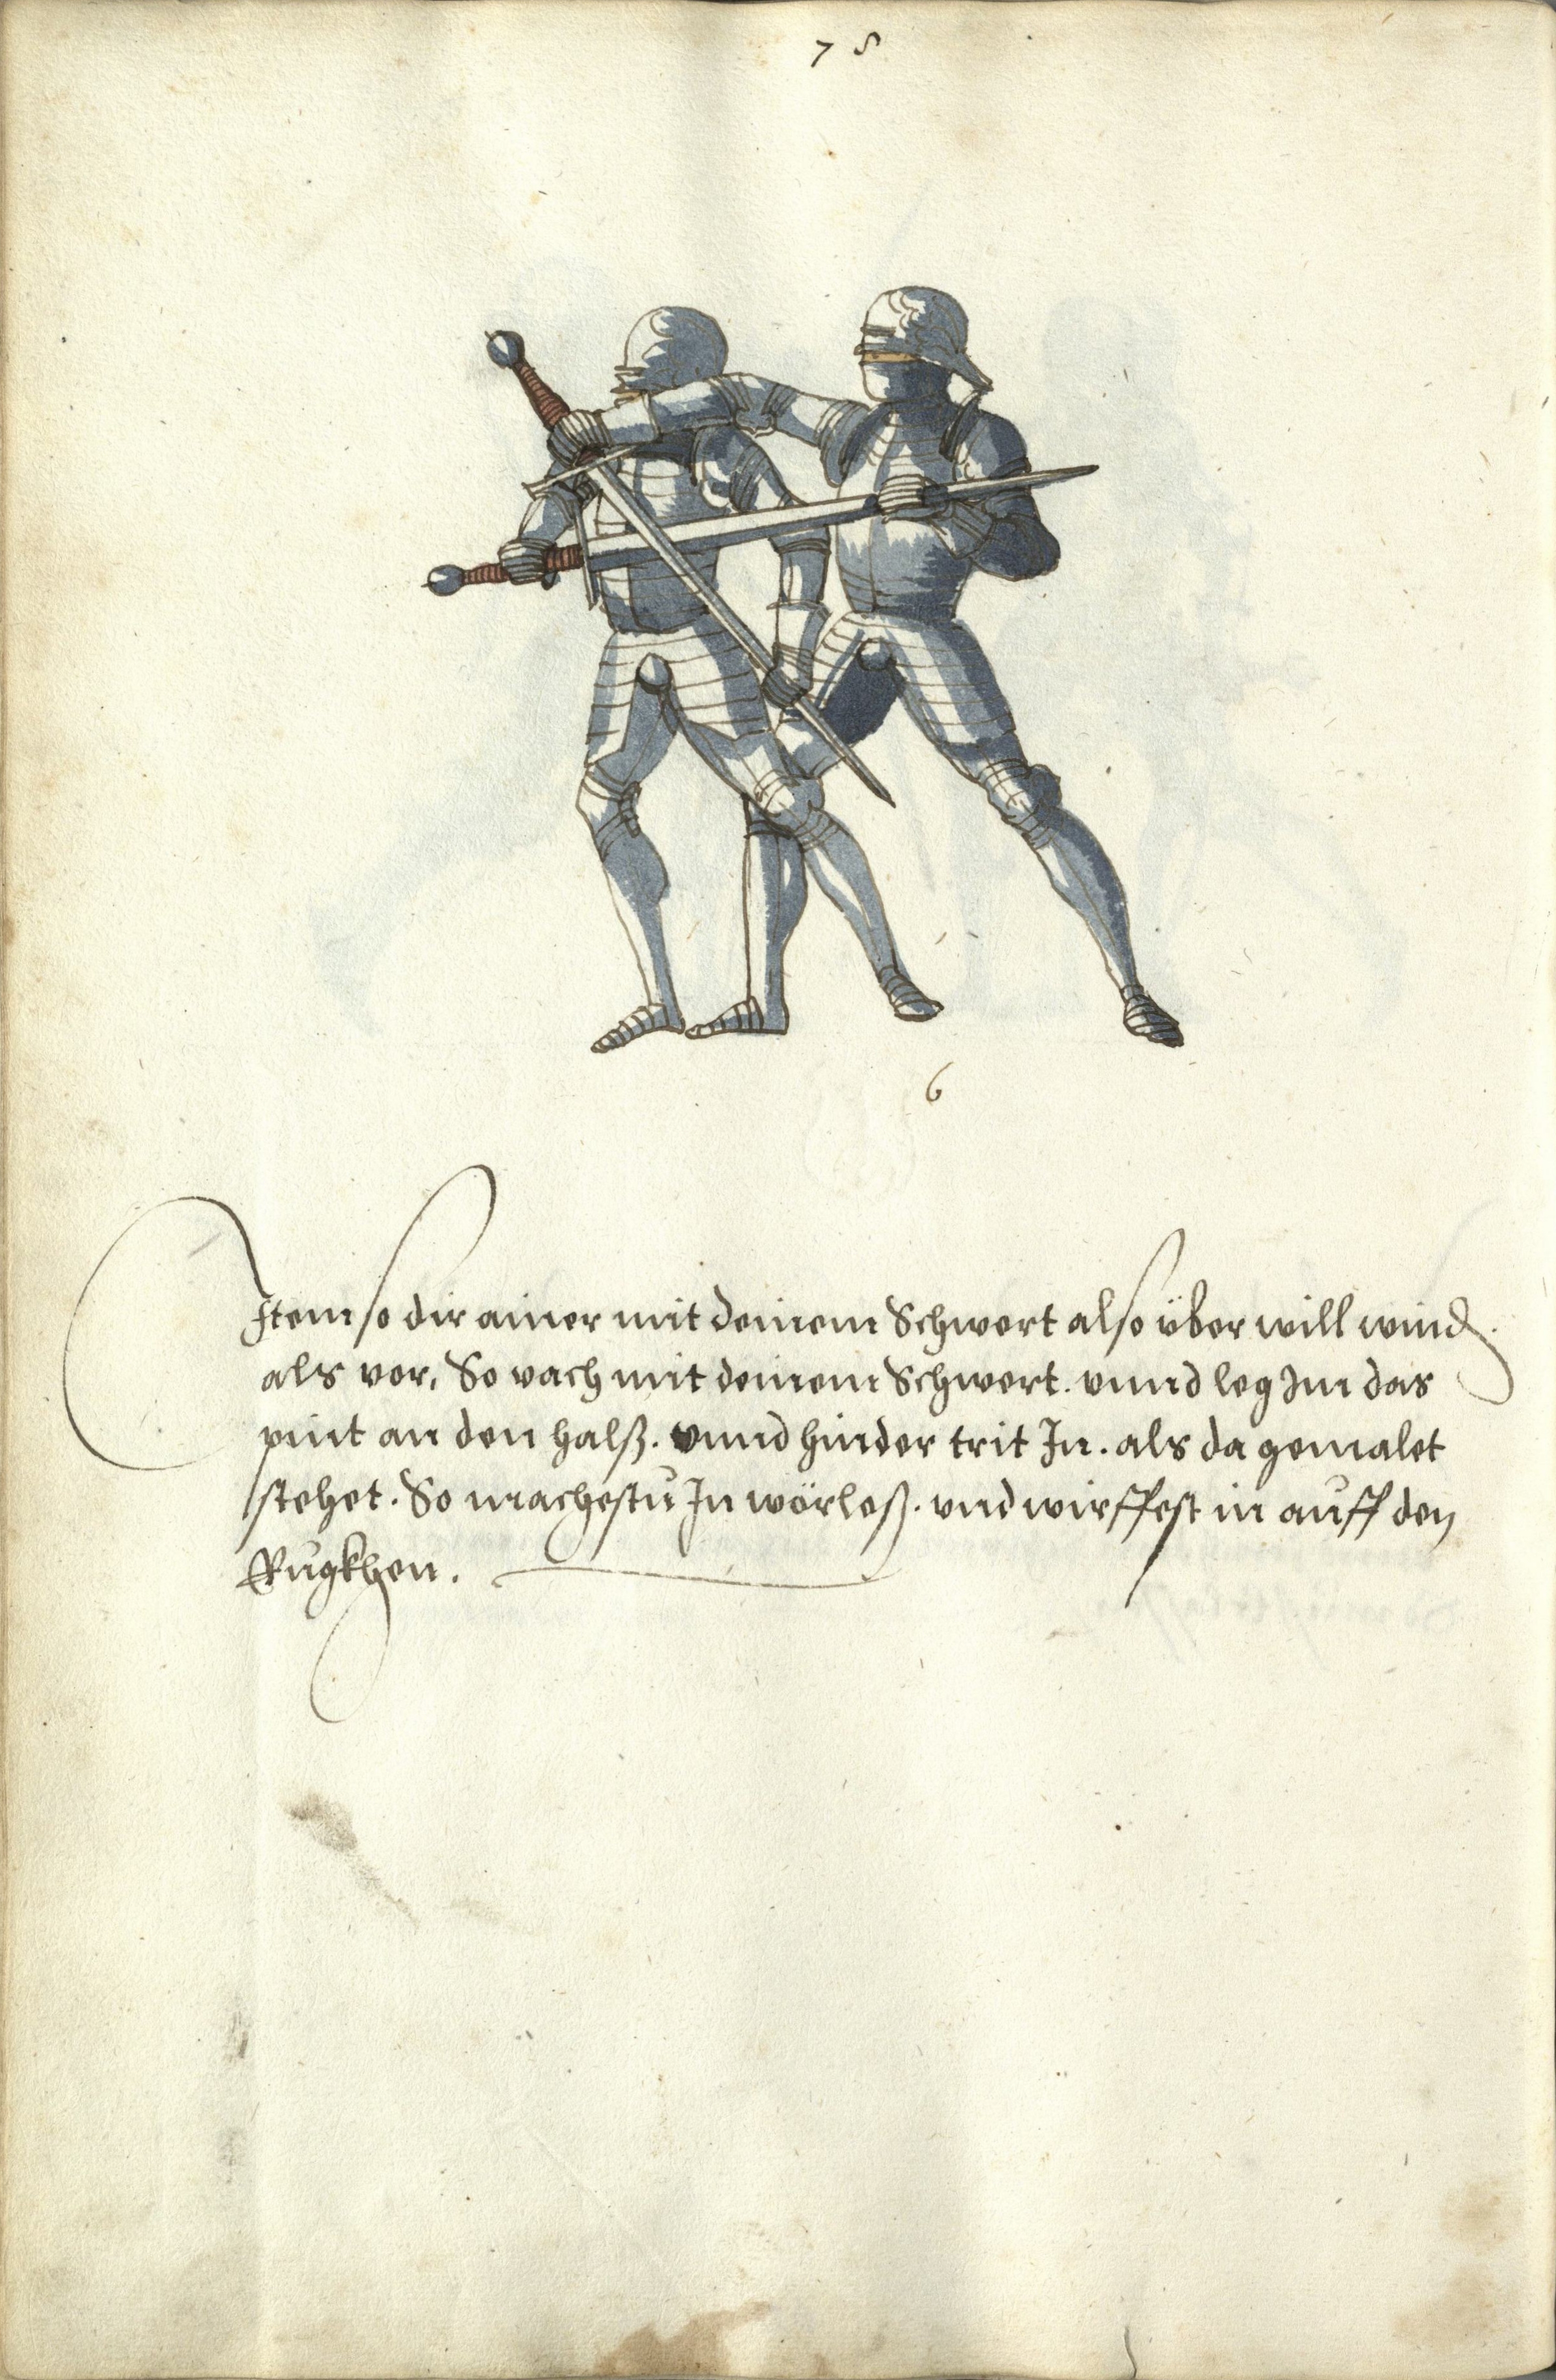 78
6
Item so dir ainer mit deinem Schwert also über will wind.
als vor, So vach mit deinem Schwert. vnnd leg Im das
pint an den halß. vnnd hinder trit In. als da gemalet
stehet. So machestu In wörloß. vnd wirffest in auff den
Rugkhen.